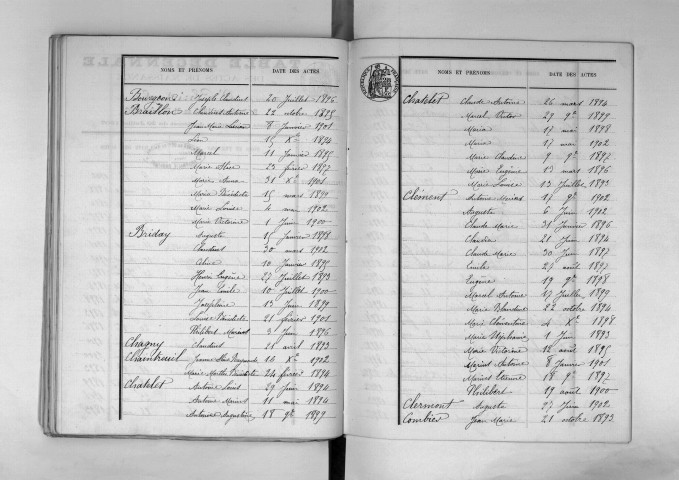 NOMS ET PRÉNOMS DATE DES ACTES
Bourgeon Joseph Claudius 20 Juillet 1896
Braillon Claudius Antoine 22 octobre 1895
Jean Marie Lucien 8 Janvier 1901
Léon 15 Xe 1894
Marcel 11 Janvier 1895
Marie 23 février 1897
Marie Anna 31 Xe 1901
Marie Bénédicte 15 mars 1899
Marie Louise 4 mai 1902
Marie Victorine 1 Juin 1900
Briday Auguste 15 Janvier 1898
Claudius 30 mars 1902
10 Janvier 1895
Henri Eugène 27 Juillet 1893
Jean 10 Juillet 1900
Joséphine 13 Juin 1899
Bénédicte 21 février 1901
Philibert Marius 3 Juin 1896
Chagny Claudius 21 avril 1893
Chainteuil Jeanne 16 Xe 1902
Marie Marthe Bénédicte 24 février 1894
Chatelet Antoine Louis 29 Juin 1894
Antoine Marius 11 mai 1894
Antoinette Augustine 18 9e 1899
NOMS ET PRÉNOMS DATE DES ACTES
Chatelet Claude Antoine 26 mars 1894
Marcel Victor 29 9e 1899
Maria 17 mai 1898
Marie 17 mai 1902
Marie Claudine 9 9e 1897
Marie Eugénie 13 mars 1896
Marie Louise 13 Juillet 1893
Clément Antoine Marius 17 9e 1902
Augusta 6 Juin 1902
Claude Marie 31 Janvier 1896
Claudia 21 Juin 1894
Claude Marie 30 Juin 1897
Emile 27 août 1897
Eugène 19 9e 1898
Marcel Antoine 17 Juillet 1899
Marie Blandine 22 octobre 1894
Marie Clémentine 4 Xe 1898
Marie Stéphanie 1 Juin 1893
Marie Victorine 12 août 1895
Marius Antoine 8 Janvier 1901
Marius Etienne 18 9e 1897
Philibert 19 août 1900
Clermont Auguste 27 Juin 1902
Combier Jean Marie 21 octobre 1893